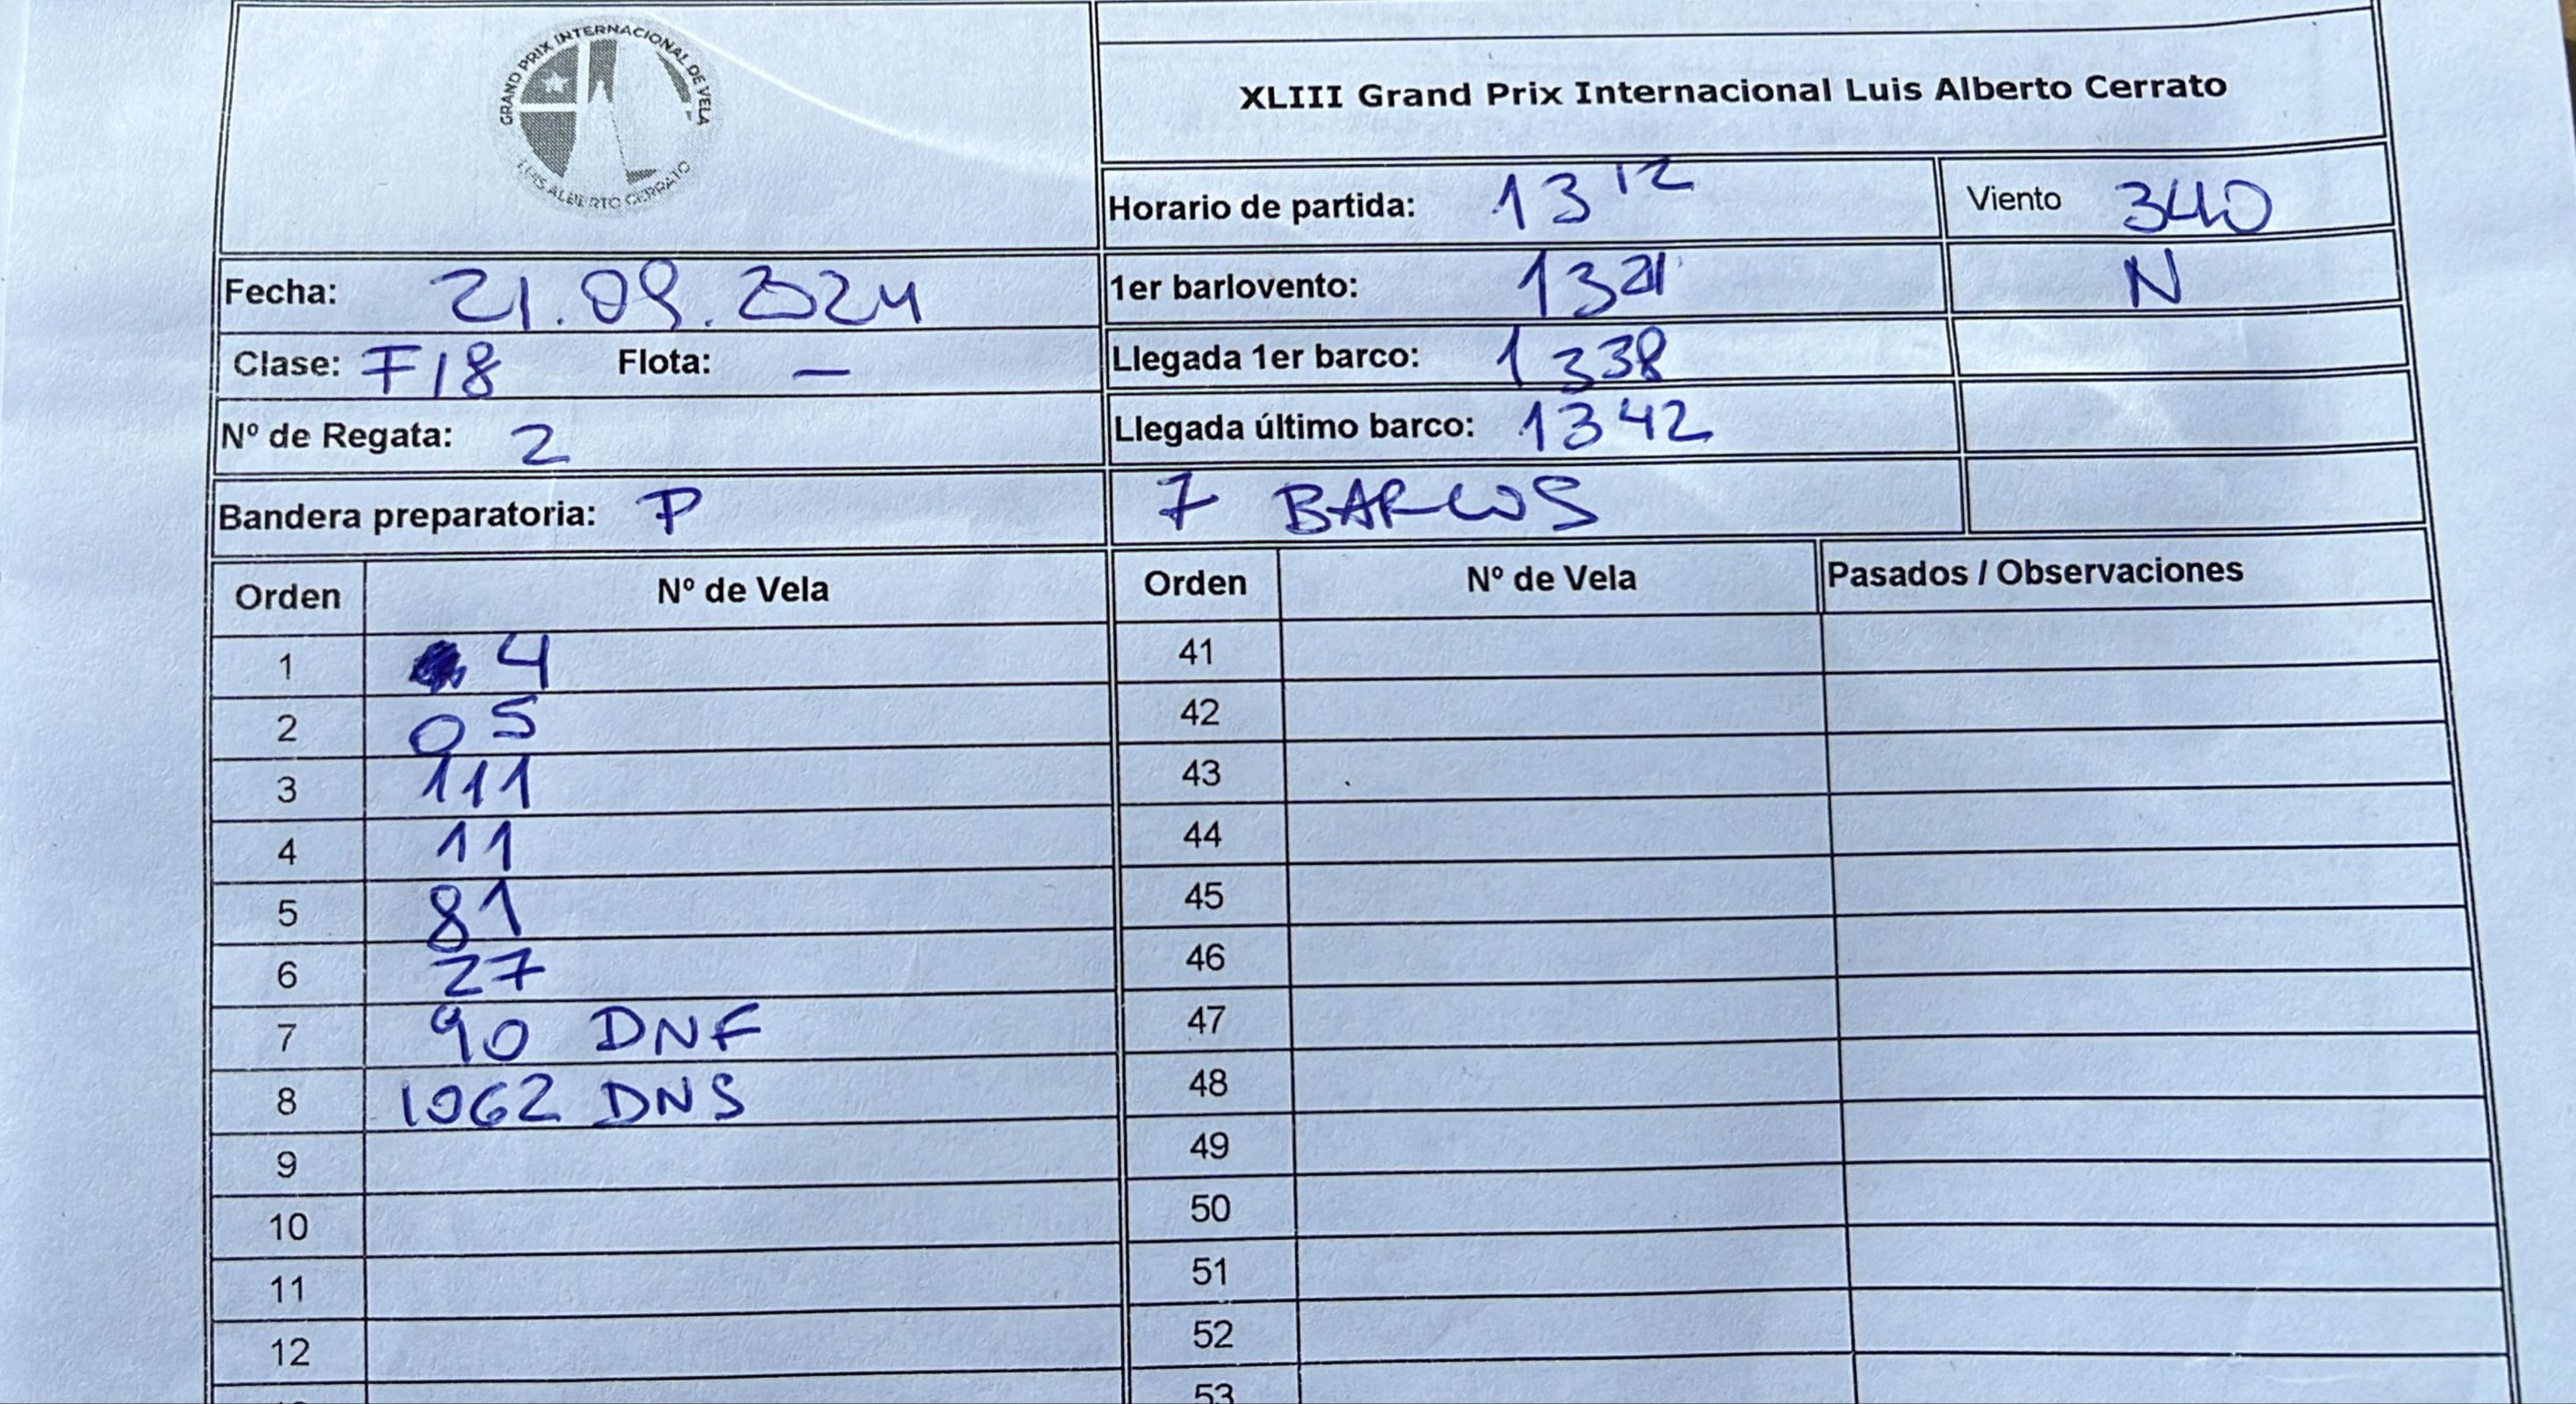 GRAND PRIX INTERNACIONAL DE VELA
LUIS ALBERTO CERRATO
XLIII Grand Prix Internacional Luis Alberto Cerrato
Horario de partida: 13 12 Viento 340
Fecha: 21.09.2024 1er barlovento: 1321 N
Clase: F18 Flota: — Llegada 1er barco: 1338
Nº de Regata: 2 Llegada último barco: 1342
Bandera preparatoria: P 7 BARCOS
Orden Nº de Vela Orden Nº de Vela Pasados / Observaciones
1 4 41
2 05 42
3 111 43
4 11 44
5 81 45
6 27 46
7 90 DNF 47
8 1062 DNS 48
9 49
10 50
11 51
12 52
53